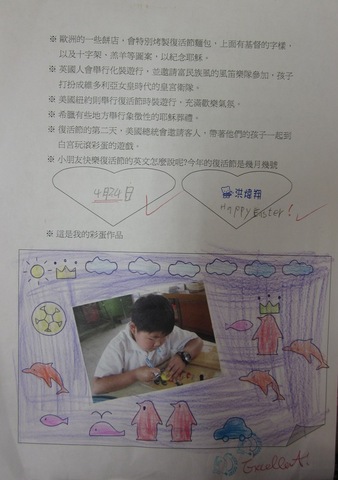 ※ 歐洲的一些餅店，會特別烤製復活節麵包，上面有基督的字樣，
以及十字架、羔羊等圖案，以紀念耶穌。
※ 英國人會舉行化裝遊行，並邀請富民族風的風笛樂隊參加，孩子
打扮成維多利亞女皇時代的皇宮衛隊。
※ 美國紐約則舉行復活節時裝遊行，充滿歡樂氣氛。
※ 希臘有些地方舉行象徵性的耶穌葬禮。
※ 復活節的第二天，美國總統會邀請客人，帶著他們的孩子一起到
白宮玩滾彩蛋的遊戲。
※ 小朋友快樂復活節的英文怎麼說呢?今年的復活節是幾月幾號
4月24日
洪煒翔
Happy Easter!
※ 這是我的彩蛋作品
Excellent!